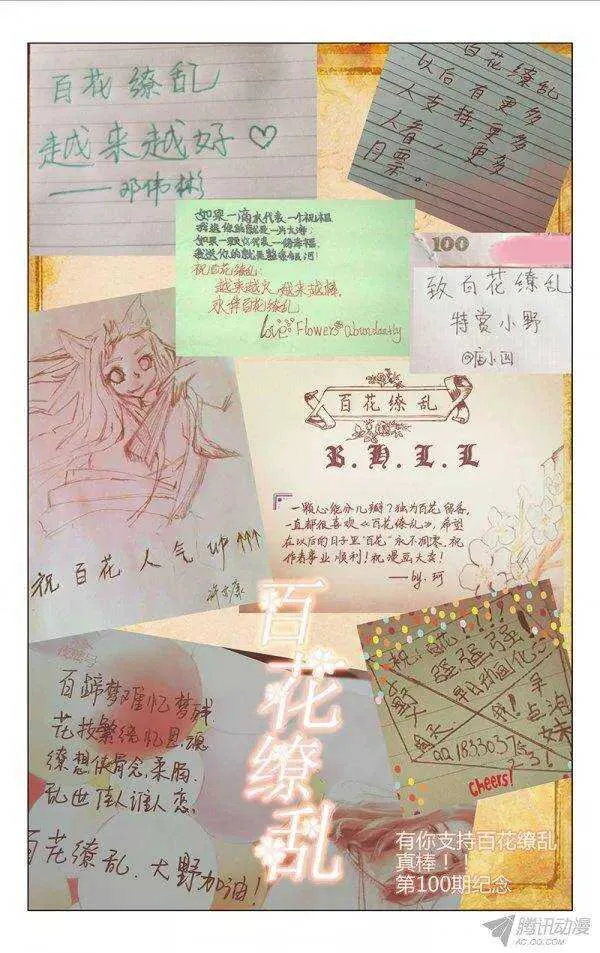 百花缭乱
越来越好♡
——邓伟彬
百花缭乱
以后有更多
人支持,更多
人看,更多
月票。
如果一滴水代表一个祝福
我送你的就是一片大海
如果一颗星代表一份幸福
我送你的就是整条银河
祝百花缭乱:
越来越火 越来越棒
永伴百花缭乱
Love Flowers abundantly
100
致百花缭乱
特赏小野
百花缭乱
B.H.L.L
一颗心能分几瓣?独为百花留香,
一直都很喜欢《百花缭乱》,希望
在以后的日子里"百花"永不凋零。祝
作者事业顺利!祝漫画大卖!
——by.珂
祝百花人气up↑↑↑
百花缭乱
强强强
QQ 1833037
Cheers!
百蹄梦难忆梦残
花枝繁绕忆思魂
缭想侠骨念柔肠
乱世佳人谁人恋
百花缭乱,大野加油!
有你支持百花缭乱
真棒!!
第100期纪念
腾讯动漫
AC.QQ.COM